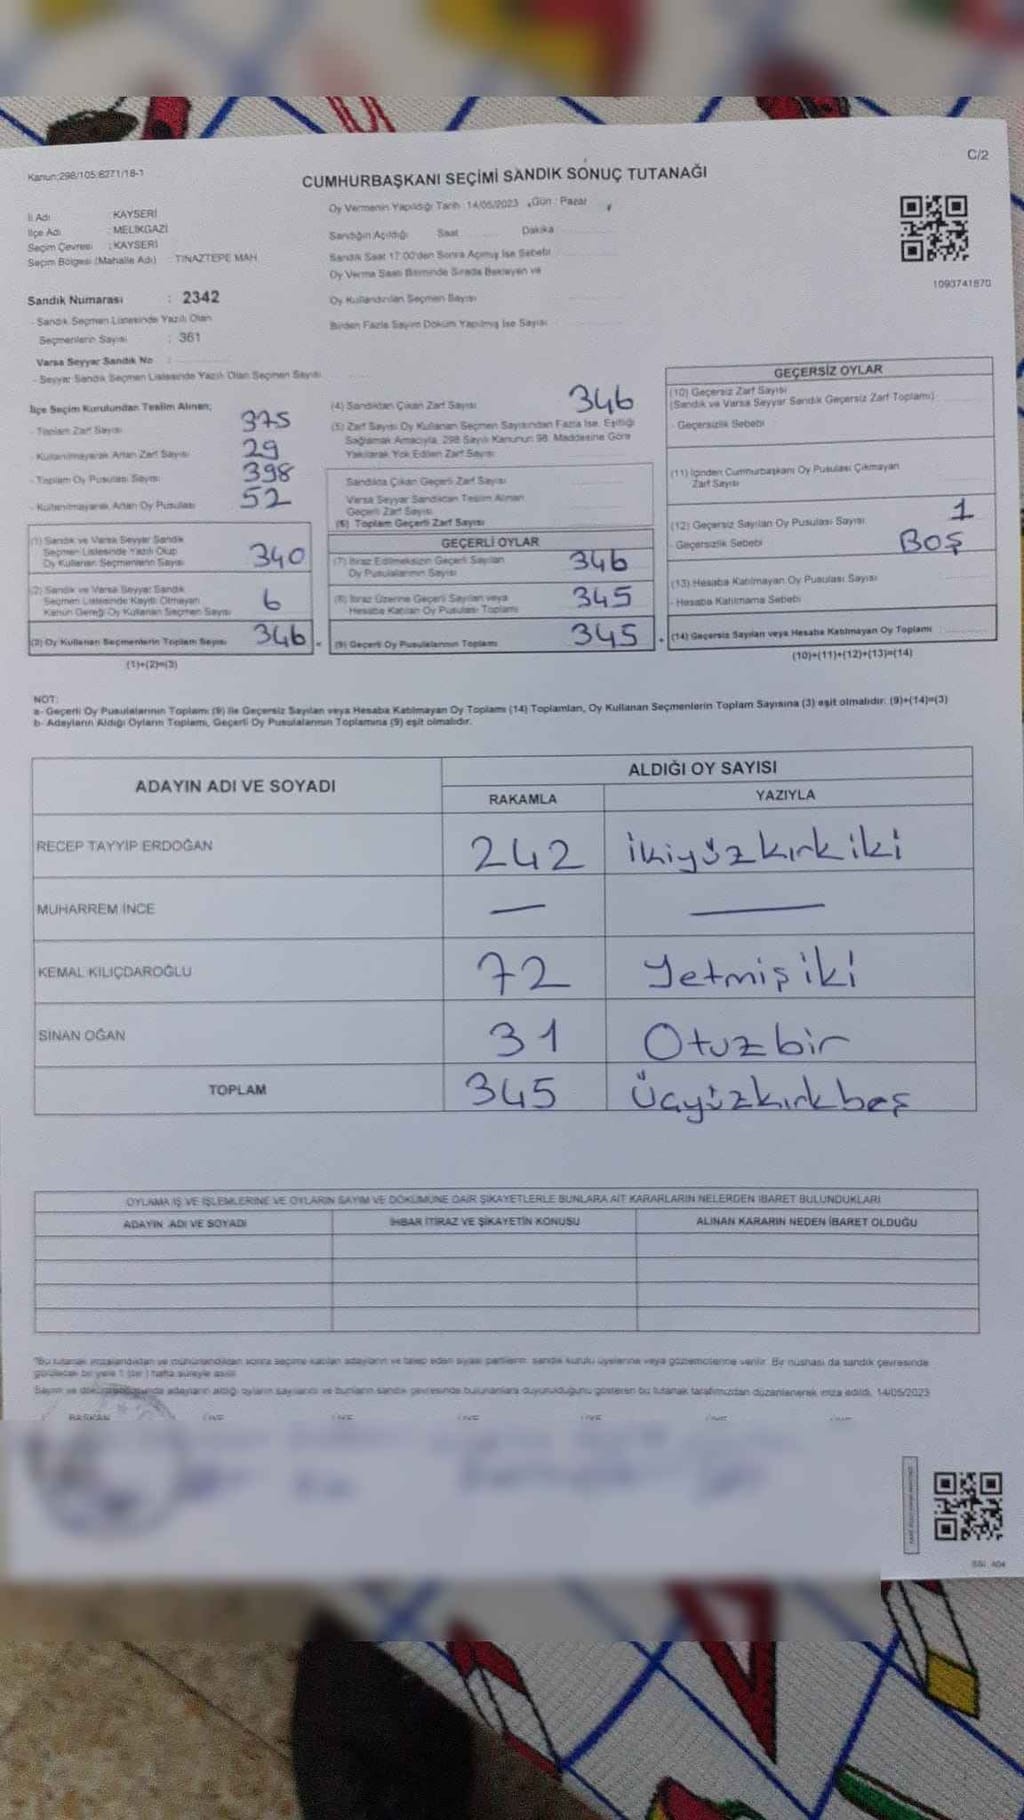 Kanun:298/105 6271/18-1
C/2
CUMHURBAŞKANI SEÇİMİ SANDIK SONUÇ TUTANAĞI
İl Adı : KAYSERİ
İlçe Adı : MELİKGAZİ
Seçim Çevresi : KAYSERİ
Seçim Bölgesi (Mahalle Adı) : TINAZTEPE MAH.
Oy Vermenin Yapıldığı Tarih : 14/05/2023 Gün : Pazar
Sandığın Açıldığı Saat Dakika
Sandık Saat 17:00'den Sonra Açılmış İse Sebebi
Oy Verme Saati Bitiminde Sırada Bekleyen ve
Oy Kullandırılan Seçmen Sayısı
Birden Fazla Sayım Döküm Yapılmış İse Sayısı
1093741870
Sandık Numarası : 2342
- Sandık Seçmen Listesinde Yazılı Olan
Seçmenlerin Sayısı : 361
Varsa Seyyar Sandık No :
- Seyyar Sandık Seçmen Listesinde Yazılı Olan Seçmen Sayısı
İlçe Seçim Kurulundan Teslim Alınan;
- Toplam Zarf Sayısı 375
- Kullanılmayarak Artan Zarf Sayısı 29
- Toplam Oy Pusulası Sayısı 398
- Kullanılmayarak Artan Oy Pusulası 52
(1) Sandık ve Varsa Seyyar Sandık
Seçmen Listesinde Yazılı Olup
Oy Kullanan Seçmenlerin Sayısı 340
(2) Sandık ve Varsa Seyyar Sandık
Seçmen Listesinde Kayıtlı Olmayan
Kanun Gereği Oy Kullanan Seçmen Sayısı 6
(3) Oy Kullanan Seçmenlerin Toplam Sayısı 346
(1)+(2)=(3)
(4) Sandıktan Çıkan Zarf Sayısı 346
(5) Zarf Sayısı Oy Kullanan Seçmen Sayısından Fazla İse, Eşitliği
Sağlamak Amacıyla, 298 Sayılı Kanunun 98. Maddesine Göre
Yakılarak Yok Edilen Zarf Sayısı
Sandıkta Çıkan Geçerli Zarf Sayısı
Varsa Seyyar Sandıktan Teslim Alınan
Geçerli Zarf Sayısı
(6) Toplam Geçerli Zarf Sayısı
GEÇERLİ OYLAR
(7) İtiraz Edilmeksizin Geçerli Sayılan
Oy Pusulalarının Sayısı 346
(8) İtiraz Üzerine Geçerli Sayılan veya
Hesaba Katılan Oy Pusulası Toplamı 345
(9) Geçerli Oy Pusulalarının Toplamı 345
GEÇERSİZ OYLAR
(10) Geçersiz Zarf Sayısı
(Sandık ve Varsa Seyyar Sandık Geçersiz Zarf Toplamı)
- Geçersizlik Sebebi
(11) İçinden Cumhurbaşkanı Oy Pusulası Çıkmayan
Zarf Sayısı
(12) Geçersiz Sayılan Oy Pusulası Sayısı 1
- Geçersizlik Sebebi BOŞ
(13) Hesaba Katılmayan Oy Pusulası Sayısı
- Hesaba Katılmama Sebebi
(14) Geçersiz Sayılan veya Hesaba Katılmayan Oy Toplamı
(10)+(11)+(12)+(13)=(14)
NOT:
a- Geçerli Oy Pusulalarının Toplamı (9) ile Geçersiz Sayılan veya Hesaba Katılmayan Oy Toplamı (14) Toplamları, Oy Kullanan Seçmenlerin Toplam Sayısına (3) eşit olmalıdır. (9)+(14)=(3)
b- Adayların Aldığı Oyların Toplamı, Geçerli Oy Pusulalarının Toplamına (9) eşit olmalıdır.
ADAYIN ADI VE SOYADI ALDIĞI OY SAYISI
RAKAMLA YAZIYLA
RECEP TAYYİP ERDOĞAN 242 ikiyüzkırkiki
MUHARREM İNCE — —
KEMAL KILIÇDAROĞLU 72 Yetmişiki
SİNAN OĞAN 31 Otuzbir
TOPLAM 345 Üçyüzkırkbeş
OYLAMA İŞ VE İŞLEMLERİNE VE OYLARIN SAYIM VE DÖKÜMÜNE DAİR ŞİKAYETLERLE BUNLARA AİT KARARLARIN NELERDEN İBARET BULUNDUKLARI
ADAYIN ADI VE SOYADI İHBAR İTİRAZ VE ŞİKAYETİN KONUSU ALINAN KARARIN NEDEN İBARET OLDUĞU
*Bu tutanak imzalandıktan ve mühürlendikten sonra seçime katılan adayların ve talep eden siyasi partilerin sandık kurulu üyelerine veya gözlemcilerine verilir. Bir nüshası da sandık çevresinde
görülecek bir yere 1 (bir) hafta süreyle asılır.
Sayım ve dökümde adayların aldığı oyların sayılarını ve bunların sandık çevresinde bulunanlara duyurulduğunu gösteren bu tutanak tarafımızdan düzenlenerek imza edildi. 14/05/2023
BAŞKAN ÜYE ÜYE ÜYE ÜYE ÜYE ÜYE